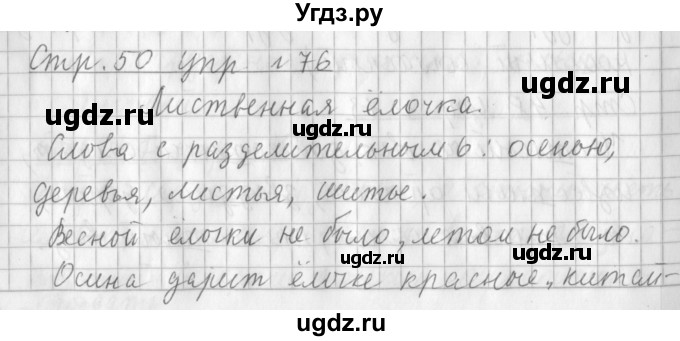 Угдз.ру
Стр. 50 упр №76
ugdz.ru ugdz.ru
Лиственная ёлочка.
ugdz.ru
Слова с разделительным ь: осенью,
ugdz.ru ugdz.ru
деревья, листья, шитье.
ugdz.ru
Весной ёлочки не было, летом не было.
ugdz.ru ugdz.ru
Осина дарит ёлочке красные, китай-
ugdz.ru